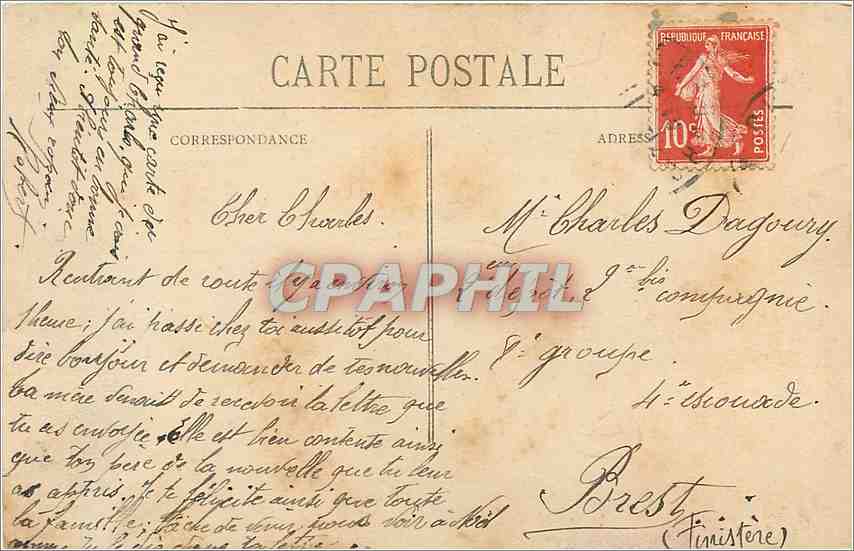 CARTE POSTALE
CORRESPONDANCE
ADRESS
REPUBLIQUE FRANÇAISE
10 c
POSTES
J'ai reçu une carte du
grand Charles, qui je crois
est toujours en bonne
santé. A bientôt donc
ton vieux copain
Cher Charles.
Rentrant de route il y a environ
1 heure, j'ai passé chez toi aussitôt pour
dire bonjour et demander de tes nouvelles.
Ta mère venait de recevoir la lettre que
tu as envoyée. Elle est bien contente ainsi
que ton père de la nouvelle que tu leur
as appris. Je te félicite ainsi que toute
la famille, tâche de venir nous voir à Noël
CPAPHIL
Mr Charles Dagoury.
2em dépôt, 2em bis
compagnie.
8e groupe.
4e escouade.
Brest
(Finistère)